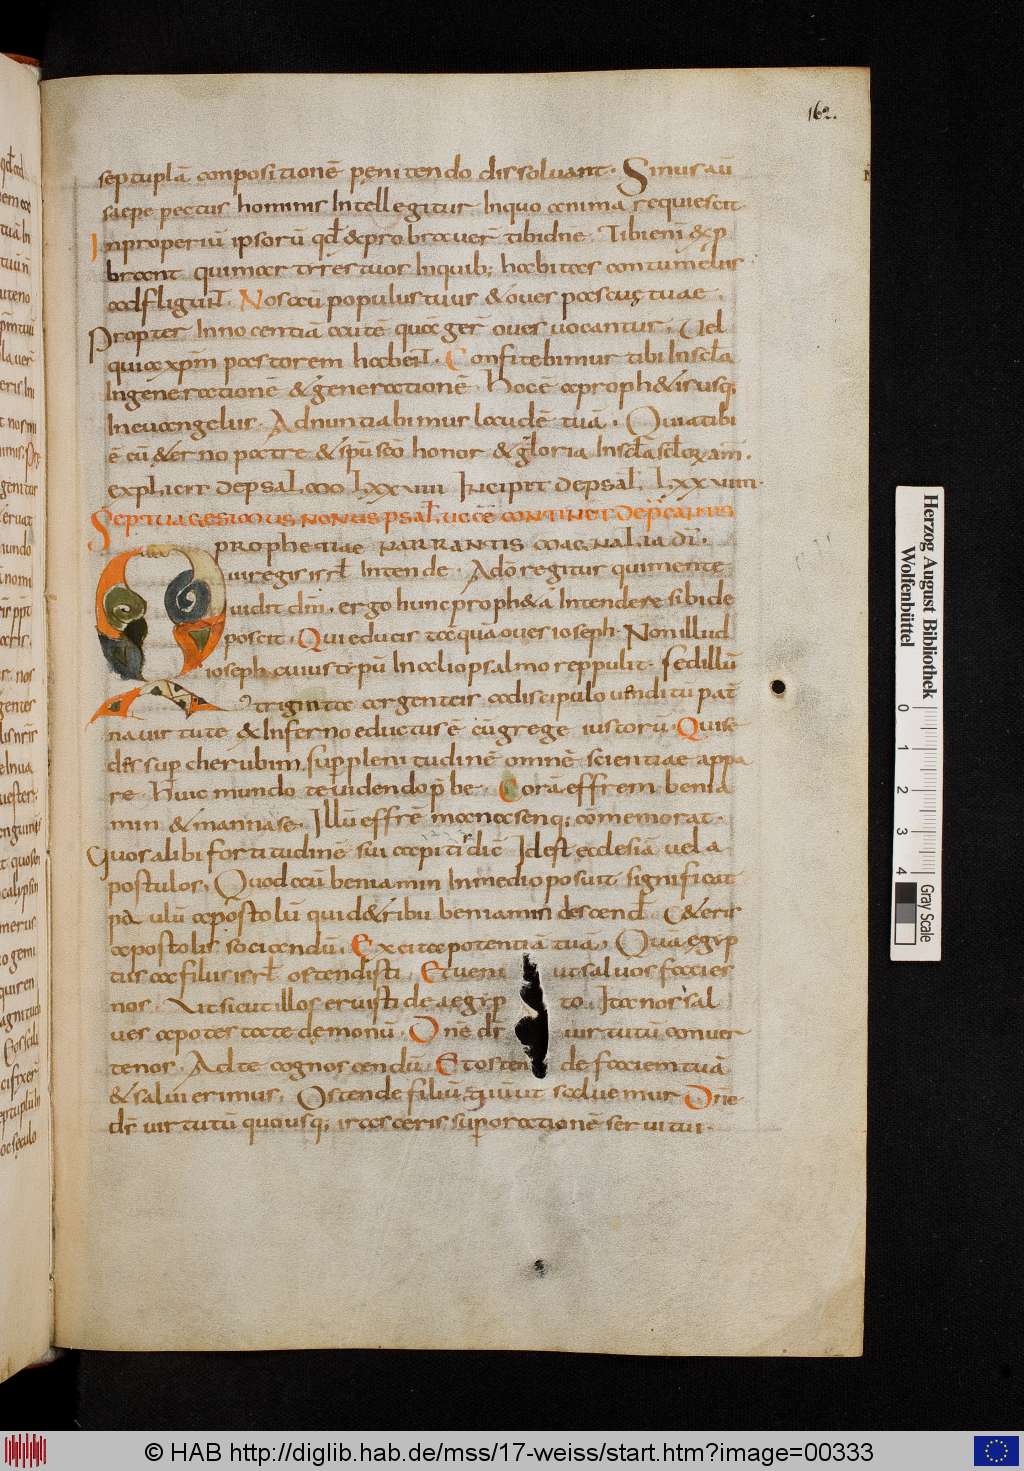 162.
septuplā conpositionē pęnitendo dissoluant. Sinus aū
saepe pectus hominis Intellegitur Inquo anima requiescit
Inproperiū ipsorū qđ &pro brauer̄ tibi dn̄e. Tibi eni &p
brant quimar tires tuos Inquib; habitas contumeliis
adfligun̄t. Nos aū populus tuus & oues pascuę tuae.
Propter Innocentiā autē qua ger̄ oues uocantur. Uel
quia xp̄m pastorem haben̄t. Confitebimur tibi In scl̄a
Ingeneratione & generationē. Hoc ē a proph& is usq;
In euangelus. Adnuntiabimus laudē tuā. Quia tibi
ē cū & erno patre & sp̄u sc̄o honor & gloria In scl̄a scl̄oꝝ am̄.
explicit de psal̄mo LXXVIII Incipit de psal̄. LXXVIIII.
Septuagesimus nonus psal̄. uoc̄ē continet depcantis
prophetiae narrantis magnalia dī.
Qui regis isrl̄ Intende. Adō regitur quimente
uidit dm̄. ergo hunc proph& ā Intendere sibi de
poscit. Qui educis taquā oues ioseph. Non illud
ioseph. cuius tripū In alio psalmo reppulit. sed illū
triginta argenteis a discipulo uenditū pat̄
na uirtute & Inferno eductus ē cū grege iustorū. Qui se
des sup̄ cherubim. sup̄ plenitudinē omnē scientiae appa
re. Huic mundo te uidendo p̄be. Corā effrem benia
min & mannase. Illū effrē manasenq; comemorat.
Quos alibi fortitudinē sui capitis dic̄. Id est ecclesiā uel a
postulos. Quod aū beniamin In medio posuit significat
paulū apostolū qui de tribu beniamin descend̄. C& eris
apostolis sociandū. Excita potentiā tuā. Quā egip
tus a filiis isrl̄ ostendisti. Et ueni ut saluos facies
nos. Ut sicut illos eruisti de aegip to. Ita nos sal
ues a potestate demonū. Dn̄e ds̄ uirtutū conuer
te nos. Ad te cognoscendū. Et osten de faciem tuā
& salui erimus. Ostende filiū tuū ut saluemur Dn̄e
ds̄ uirtutū quousq; irasceris sup̄ orationē serui tui.
Herzog August Bibliothek
Wolfenbüttel
0 1 2 3 4
Gray Scale
© HAB http://diglib.hab.de/mss/17-weiss/start.htm?image=00333